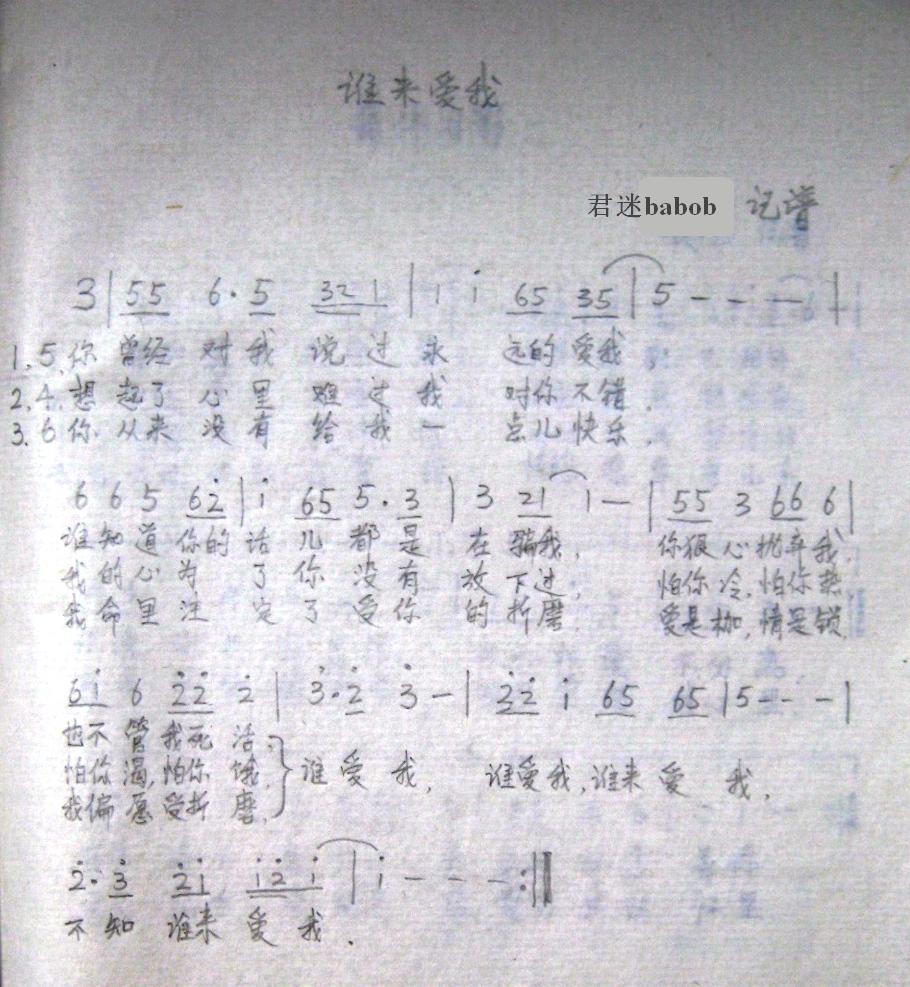 谁来爱我
君迷babob 记谱
3 | 55 6·5 321 | 1 i 65 35 | 5 - - - |
1.5.你 曾经 对我 说过永 远的爱我,
2.4.想 起了 心里 难过我 对你不错.
3.6 你 从来 没有 给我一 点儿快乐.
6 6 5 62̇ | i 65 5·3 | 3 21 1 - | 55 3 66 6 |
谁知道你的话儿都是 在骗我, 你狠心抛弃我,
我的心为 了你没有 放下过, 怕你冷,怕你热,
我命里注 定了受你 的折磨. 爱是枷,情是锁.
6i 6 2̇2̇ 2̇ | 3̇·2̇ 3̇ - | 3̇2̇ i 65 65 | 5 - - - |
也不管我死活,
怕你渴,怕你饿, } 谁爱我, 谁爱我,谁来爱 我.
我偏愿受折磨.
2̇·3̇ 2̇i i2̇i | i - - - :‖
不知 谁来爱我.